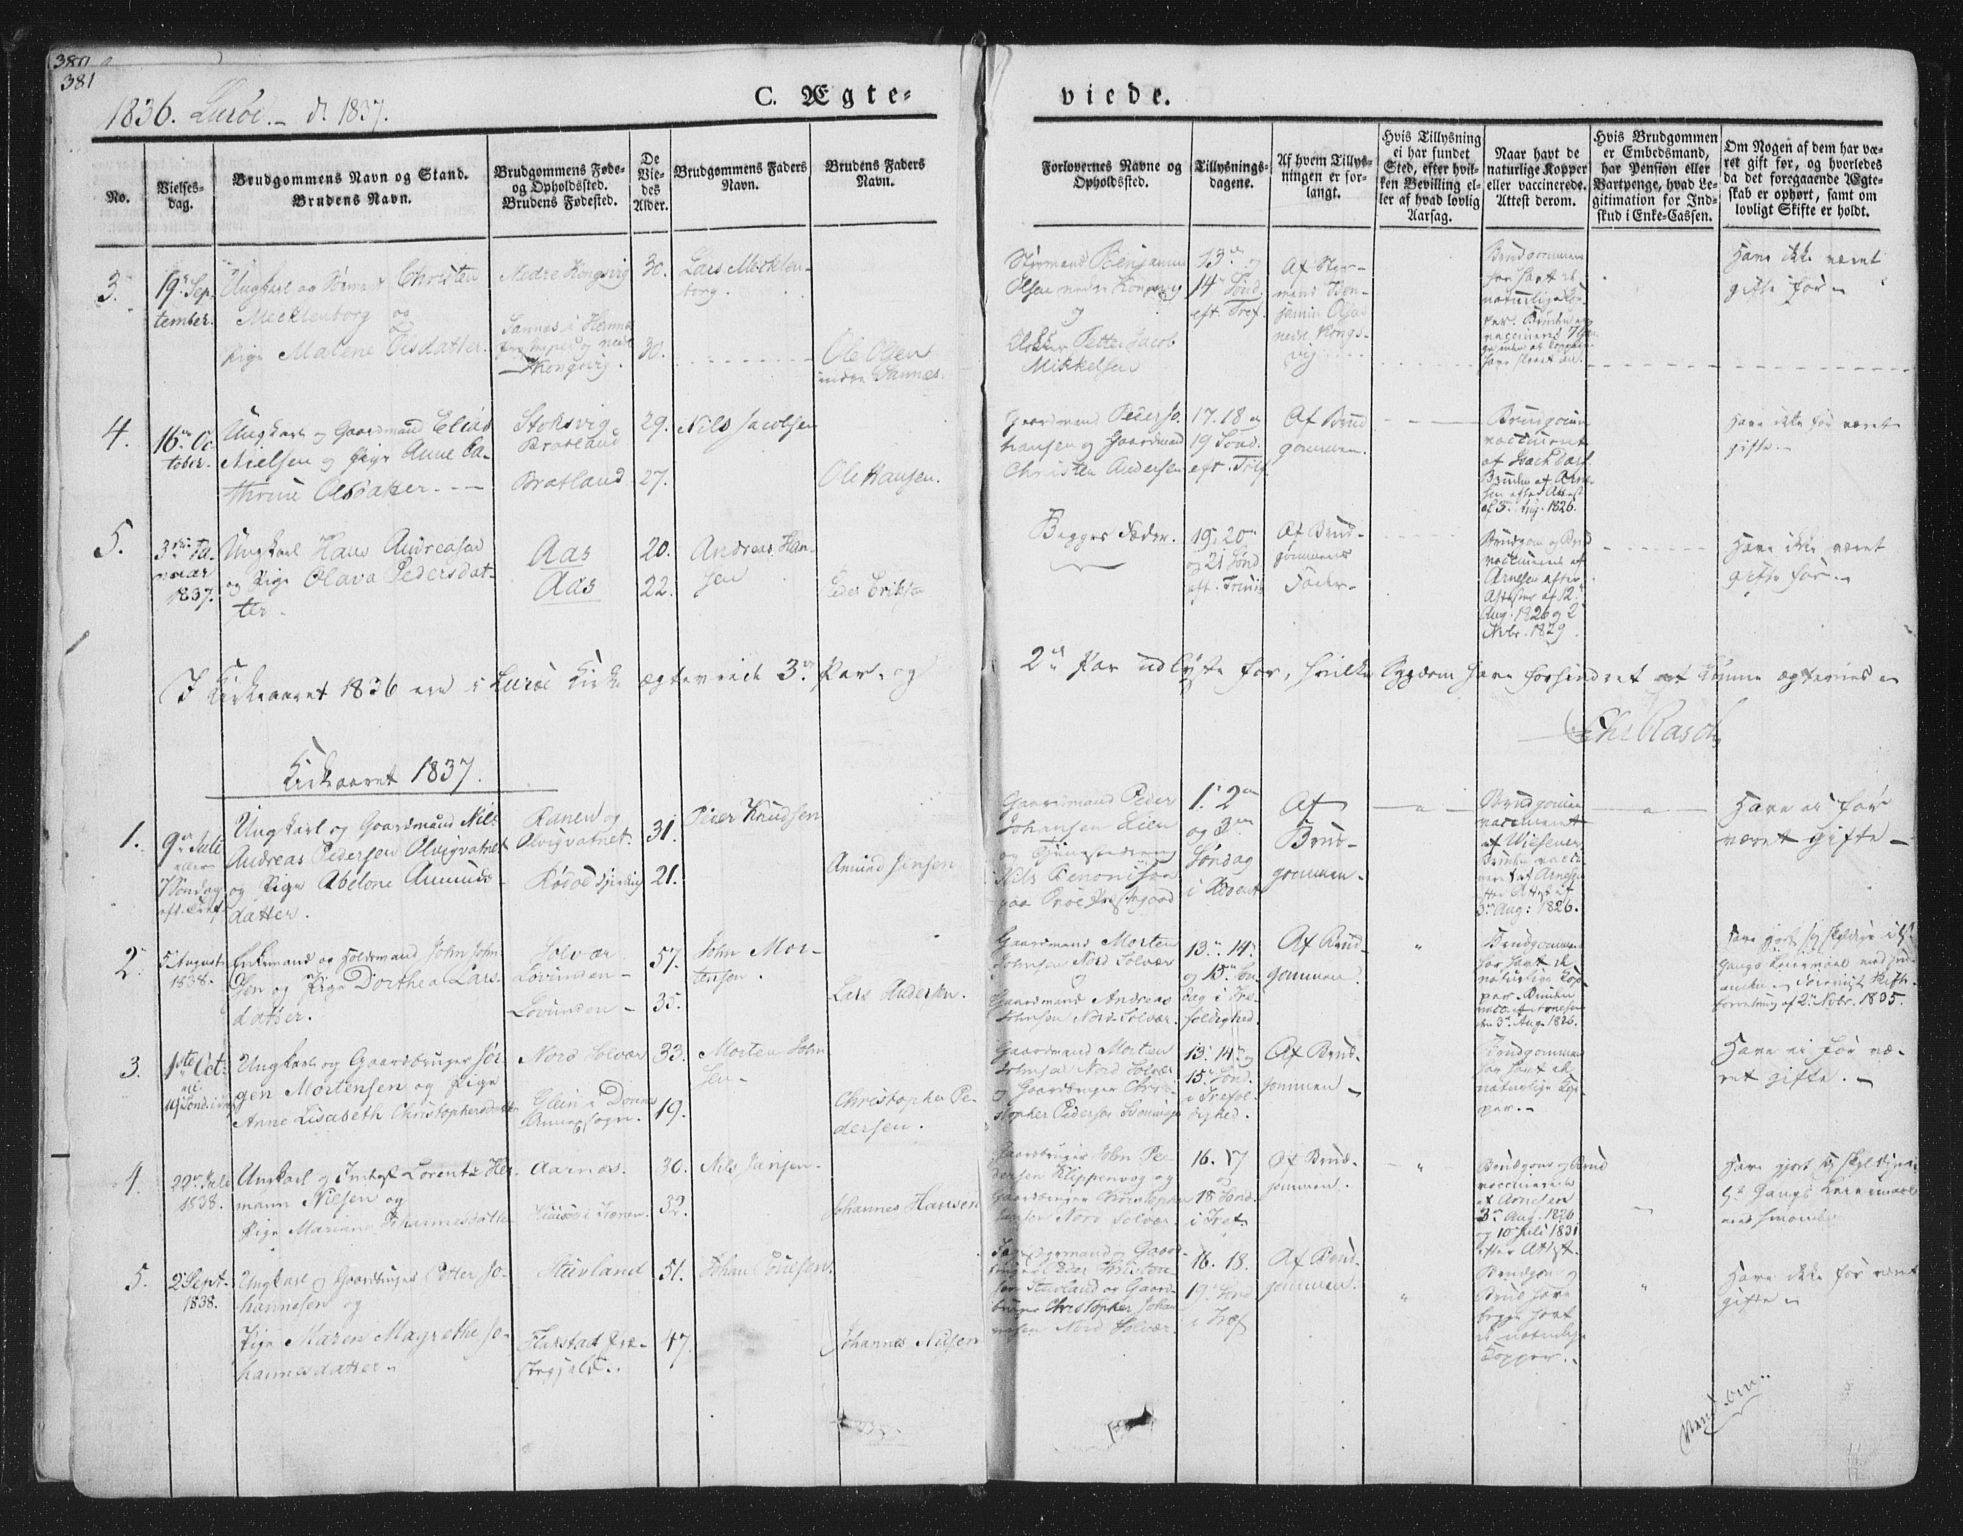 380
381
1836. Lurøe. – d. 1837.
C. Ægte-
viede.
No.
Vielses-
dag.
Brudgommens Navn og Stand.
Brudens Navn.
Brudgommens Føde-
og Opholdssted.
Brudens Fødested.
De
Vie-
des
Alder.
Brudgommens Faders
Navn.
Brudens Faders
Navn.
Forlovernes Navne og
Opholdssted.
Tillysnings-
dagene.
Af hvem Tillys-
ningen er for-
langt.
Hvis Tillysning
ei har fundet
Sted, efter hvil-
ken Bevilling el-
ler af hvad lovlig
Aarsag.
Naar havt de
naturlige Kopper
eller vaccinerede.
Attest derom.
Hvis Brudgommen
er Embedsmand,
har Pension eller
Vartpenge, hvad Le-
gitimation for Ind-
skud i Enke-Cassen.
Om Nogen af dem har væ-
ret gift før, og hvorledes
da det foregaaende Ægte-
skab er ophørt, samt om
lovligt Skifte er holdt.
3.
19 Sep-
tember.
Ungkarl og Christen
Mecklenborg og
Pige Malene Olsdatter.
Nedre Kongsvig
Sannes i
Kongsvig.
30.
30.
Lars Mecklen-
borg.
Ole Olsen
Sannes.
Styrmand Benjamin
Olsen nedre Kongsvig
og
Petter Jacob
Mikkelsen
13de
14de Sønd.
eft. Tref.
Af Styr-
mand Ben-
jamin Olsen
nedre Kongs-
vig
Brudgommen
har havt de
naturlige Kop-
per. Bruden
Have ikke været
gifte før –
4.
16de Oc-
tober.
Ungkarl og Gaardmand Elias
Nielsen og Pige Anne Ca-
thrine Olsdatter. – –
Stoksvig
Bratland
Bratland
29.
27.
Nils Jacobsen
Ole Hansen.
Gaardmand Peder Jo-
hansen og Gaardmand
Christen Andersen
17. 18 og
19 Sønd.
eft. Tref.
Af Brud
gommen.
Brudgom
vaccineret
af
Bruden af Arne-
sen efter Attest
af 3die Aug. 1826.
Have ikke før været
gifte. –
5.
3die Ja-
nuar
1837.
Ungkarl Hans Andreasen
og Pige Olava Pedersdat-
ter.
Aas
Aas
20.
22.
Andreas Han-
sen
Peder Eriksen
Begges Fædre.
19, 20de
og 21 Sønd
eft. Trinit.
Af Brud-
gommens
Fader –
Brudgom og Brud
vaccinerede af
Arnesen efter
Attester af 12
Aug. 1826 og 2
Novbr. 1829.
Have ikke været
gifte før. –
I Kirkeaaret 1836 ere i Lurøe Kirke ægteviede 3de Par, og
2de Par udlyste for, hvilke Sygdom have forhindret at kunne ægtevies –
Chr Rasch
Kirkeaaret 1837.
1.
9de Juli
eller
7 Søndag
eft. Tref.
Ungkarl og Gaardmand Nils
Andreas Pedersen Olvigvatnet
og Pige Abelone Amunds-
datter.
Ranen og
Olvigvatnet.
Rødøe
31.
21.
Peder Knudsen
Amund Jensen
Gaardmand Peder
Johansen Lien
og
Nils Benonisen
paa Præstegaard
1, 2den
og 3die
Søndag
i Advent
Af
Brud-
gommen –
Brudgommen
vaccineret
af Wiesener
Bruden vacci-
neret af Arnesen
efter Attest af
3die Aug: 1826.
Have ei før
været gifte –
2.
5 August
1838.
Enkemand og Huusmand John John-
sen og Pige Dorthea Lars-
datter.
Solvær
Lovunden –
Lovunden –
57.
35.
John Mor-
tensen.
Lars Andersen.
Gaardmand Morten
Johnsen Nord Solvær
og
Gaardmand Andreas
Johnsen Nord Solvær.
13de 14de
og 15de Søn
dag i Tre-
foldighed.
Af Brud-
gommen.
Brudgommen
har havt de
naturlige Kop-
per. Bruden
vacc. af Arnesen
den 3die Aug. 1826.
Skifte-
forretning af 2 Novbr. 1835.
3.
1ste Oct.
Ungkarl og Gaardbruger Jør-
gen Mortensen og Pige
Anne Lisabeth Christophersdatter
Nord Solvær
Glein i Dønnes
Annexsogn.
33.
19.
Morten John-
sen –
Christopher Pe-
dersen.
Gaardmand Morten
Johnsen Nord Solvær
og Gaardbruger Chri-
stopher Pedersen
13. 14de og
15de Sønd.
i Trefol-
dighed.
Af Brud-
gommen –
Brudgommen
har havt de
naturlige Kop-
per. –
Have ei før væ-
ret gifte. –
4.
22de Juli
1838.
Ungkarl og Inderst Lorents Her-
mann Nilsen og
Pige Mariane Johannesdatter
Aarnæs.
30.
32.
Nils Jansen –
Johannes Hansen
Gaardbruger John Pe-
dersen Klippenvog og
Gaardbruger Christopher
Nord Solvær.
16. 17
og
18 Sønd.
i Tref.
Af Brud-
gommen.
Brudgom og Brud
vaccinerede
af Arnesen
3die Aug. 1826
og 10 Juli 1831
efter Attest.
5.
2 Sept.
1838.
Ungkarl og Gaardbruger Petter Jo-
hannesen og
Pige Maren Magrethe Jo-
hannesdatter –
Stuvland
Flakstad Præ-
stegjeld..
51.
47.
Johan Povelsen.
Johannes Nilsen
og Gaard-
bruger Peder Christen-
sen Stuvland og Gaard-
bruger Christopher Johan-
nesen Nord Solvær.
16. 18.
19de Sønd
i Tref
Af Brud-
gommen.
Brudgom og
Brud have
begge havt
de naturlige
Kopper. –
Have ikke før været
gifte –